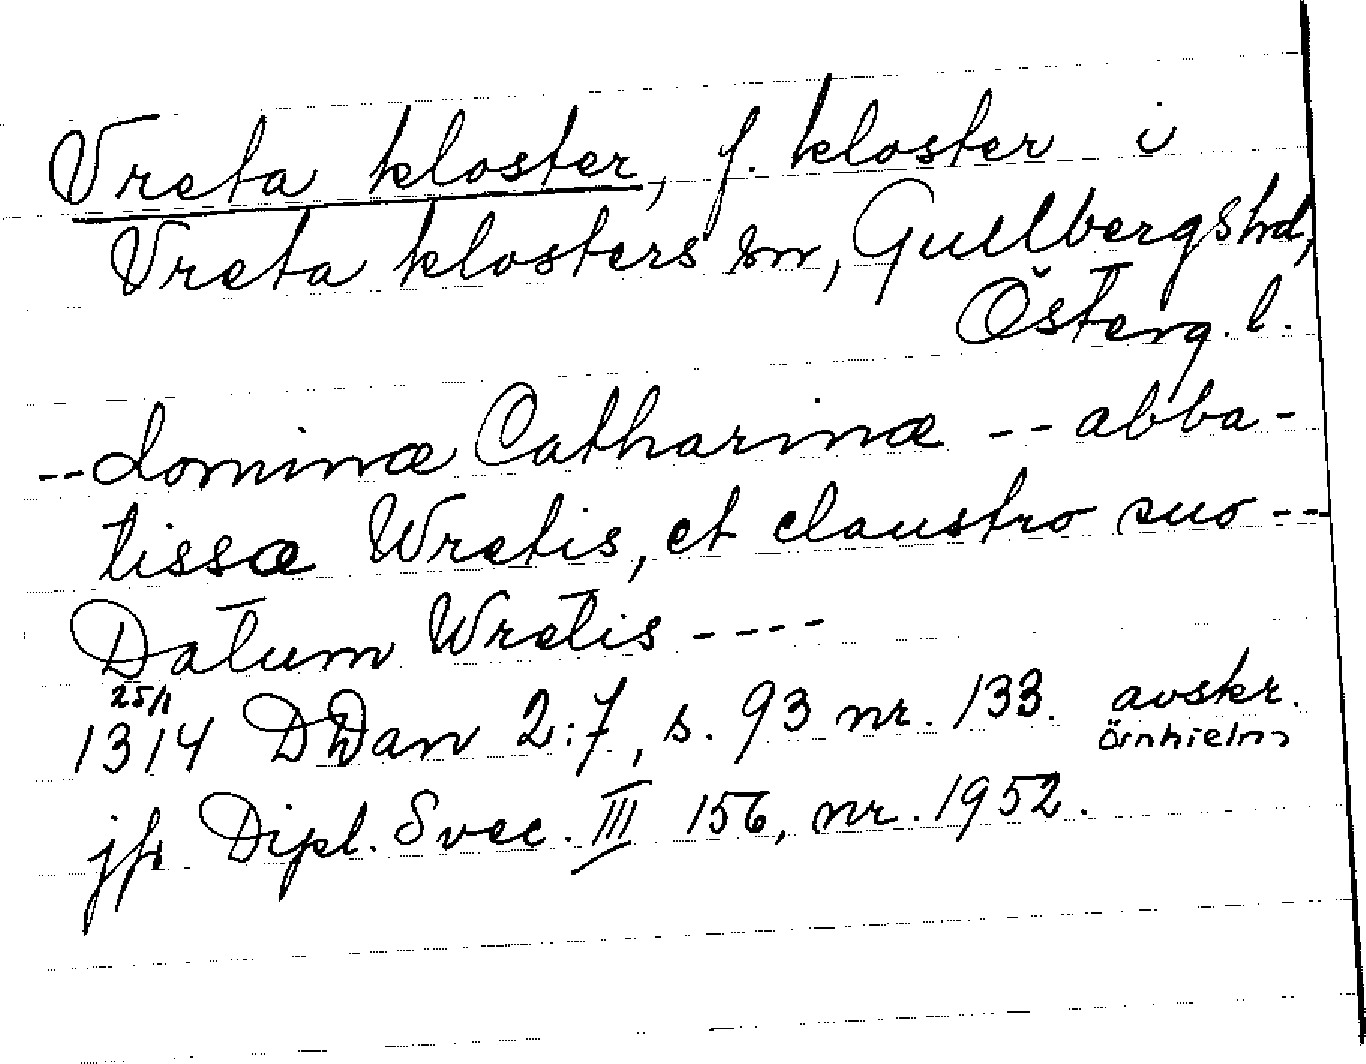 Vreta kloster, f. kloster i
Vreta klosters sn, Gullbergs hd,
Österg. l.
--dominæ Catharinæ -- abba-
tissæ Wretis, et claustro suo ---
Datum Wretis ----
25/1
1314 DDan 2:7, s. 93 nr. 133. avskr.
Örnhielm
jfr Dipl. Svec. III 156, nr. 1952.